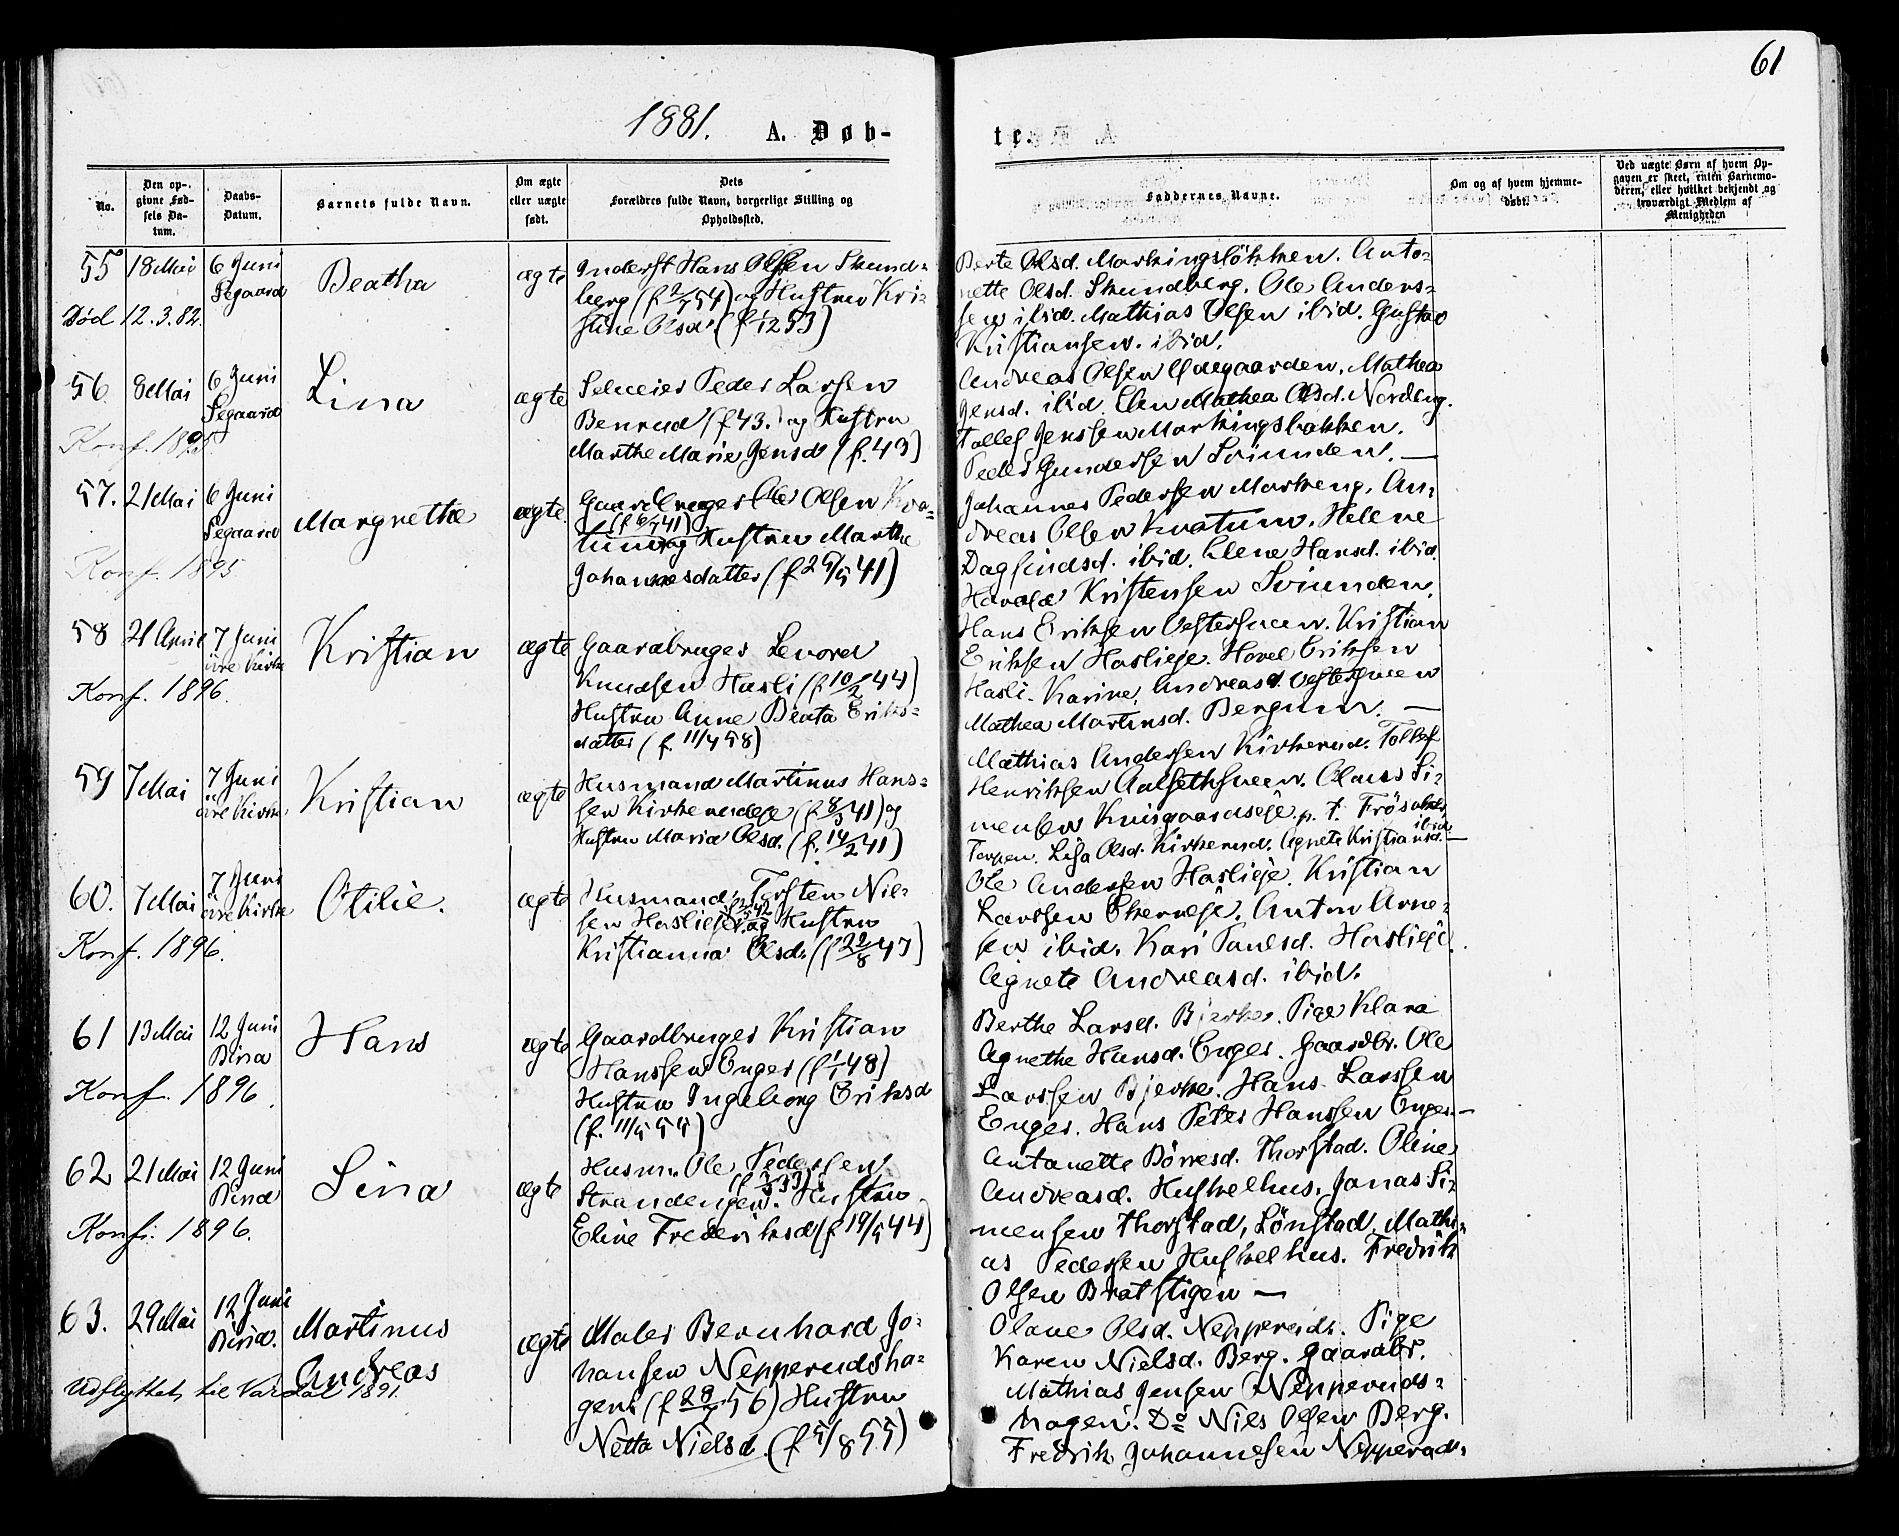 61
1881. A. Døb-
te.
No.
Den op-
givne Fød-
sels Da-
tum.
Daabs-
Datum.
Barnets fulde Navn.
Om ægte
eller uægte
født.
Dets
Forældres fulde Navn, borgerlige Stilling og
Opholdssted.
Faddernes Navne.
Om og af hvem hjemme-
døbt.
Ved uægte Børn af hvem Op-
gaven er skeet, enten Barnemo-
deren, eller hvilket bekjendt og
troværdigt Medlem af
Menigheden
55 18 Mai 6 Juni
Segaard
Beatha
ægte
Inderst Hans Olsen Skund-
berg (f 54) og Hustru Kri-
stine Olsd. (f 53)
Død 12.3.82.
Berte Olsd. Markingsløkken. Anto-
nette Olsd. Skundberg. Ole Anders-
sen ibid. Mathias Olsen ibid. Gustav
Kristiansen. ibid.
56 8 Mai 6 Juni
Segaard
Lina
ægte
Seleier Peder Larsen
Benrud (f 43.) og Hustru
Marthe Marie Jensd. (f. 43)
Konf. 1895
Andreas Olsen Mathea
Jensd. ibid. Elen Mathea Olsd. Nordeng.
Tollef Jenssen Markingsbakken.
Peder Gundersen Sviunden. —
57. 21 Mai 6 Juni
Segaard
Margrethe
ægte.
Gaardbruger Ole Olsen Kva-
(f 41)
tum og Hustru Marthe
Johannesdatter (f 29/5 41)
Konf. 1895
Johannes Pedersen Markeng. An-
dreas Olsen Kvatum. Helene
Dagfindsd. ibid. Elene Hansd. ibid.
Harald Kristensen Sviunden.
58 21 April 7 Juni
øvre Kirke
Kristian
ægte
Gaardbruger Levord
Knudsen Hasli (f 10/2 44)
Hustru Anne Beata Eriks-
datter (f. 11/4 58)
Konf. 1896.
Hans Eriksen Vestersveen. Kristian
Eriksen Haslieje. Hovel Eriksen
Hasli. Karine Andreasd. Vestersveen
Mathea Martinsd. Bergum. —
59 7 Mai 7 Juni
øvre Kirke
Kristian
ægte
Husmand Martinus Hans-
sen Kirkerudeje (f 8/3 41) og
Hustru Maria Olsd. (f. 14/2 41)
Mathias Andersen Kirkerud. Tollef
Henriksen Aalsethsveen. Olaus Si-
mensen Kuisgaardseje p. t. Frösaker
ibid
Torpen. Lisa Olsd. Kirkerud. Agnete Kristiansd. —
60. 7 Mai 7 Juni
øvre Kirke
Otilie.
ægte
Husmand Torsten Niel-
sen Haslieje og Hustru
Kristianna Olsd. (f 22/8 47)
Konf. 1896.
Ole Andersen Haslieje. Kristian
Larssen Ekerneje. Anton Arne-
sen ibid. Kari Paulsd. Haslieje.
Agnete Andreasd. ibid.
61 13 Mai 12 Juni
Biria
Hans
ægte
Gaardbruger Kristian
Hanssen Enger (f 1/1 48)
Hustru Ingeborg Eriksd
(f. 11/5 55)
Konf. 1896.
Berthe Larsd. Bjerke. Pige Klara
Agnethe Hansd. Enger. Gaardbr. Ole
Larssen Bjerke. Hans Larssen
Enger. Hans Peter Hanssen Enger. —
62 21 Mai 12 Juni
Biria
Lina
ægte
Husm. Ole Pedersen
Strandengen. Hustru
Eline Frederiksd (f 19/5 44)
Konf: 1896.
Antonette Börresd. Thorstad. Oline
Andreasd. Huskelhus. Jonas Si-
mensen Thorstad, Lönstad. Mathi-
as Pedersen Huskelhus. Fredrik
Olsen Bratstigen —
63. 29 Mai 12 Juni
Biria.
Martinus
Andreas
ægte
Maler Bernhard Jo-
hansen Nepperudsha-
gen (f 56) Hustru
Netta Nielsd. (f 5/8 55)
Udflyttet til Vardal 1891.
Olave Olsd. Nepperud. Pige
Karen Nielsd. Berg. Gaardbr.
Mathias Jensen Nepperuds-
hagen. Do Niels Olsen Berg.
Fredrik Johannesen Nepperud.